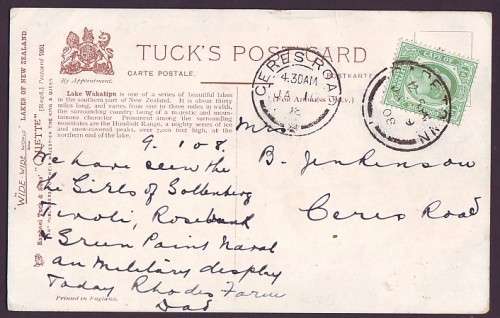 TUCK'S POST CARD
CARTE POSTALE.
By Appointment.
Lake Wakatipu is one of a series of beautiful lakes
in the southern part of New Zealand. It is about thirty
miles long, and varies from one to three miles in width,
the surrounding country being of a majestic and moun-
tainous character. Prominent among the surrounding
mountains is the Humboldt Range, a mighty series of ice
and snow-covered peaks, over 7,000 feet high, at the
northern end of the lake.
"WIDE-WIDE-WORLD" LAKES OF NEW ZEALAND
"OILETTE" (Regd.) Postcard
Raphael Tuck & Sons'
Printed in England.
CERES ROAD
4.30AM
JA 11
08
9.1.08.
We have seen the
the Girls of Gottenberg
Tivoli, Rosebank
& Green Point Naval
an Military display
Today Rhodes Farm
Dad
Mrs
B. Jenkinson
Ceres Road